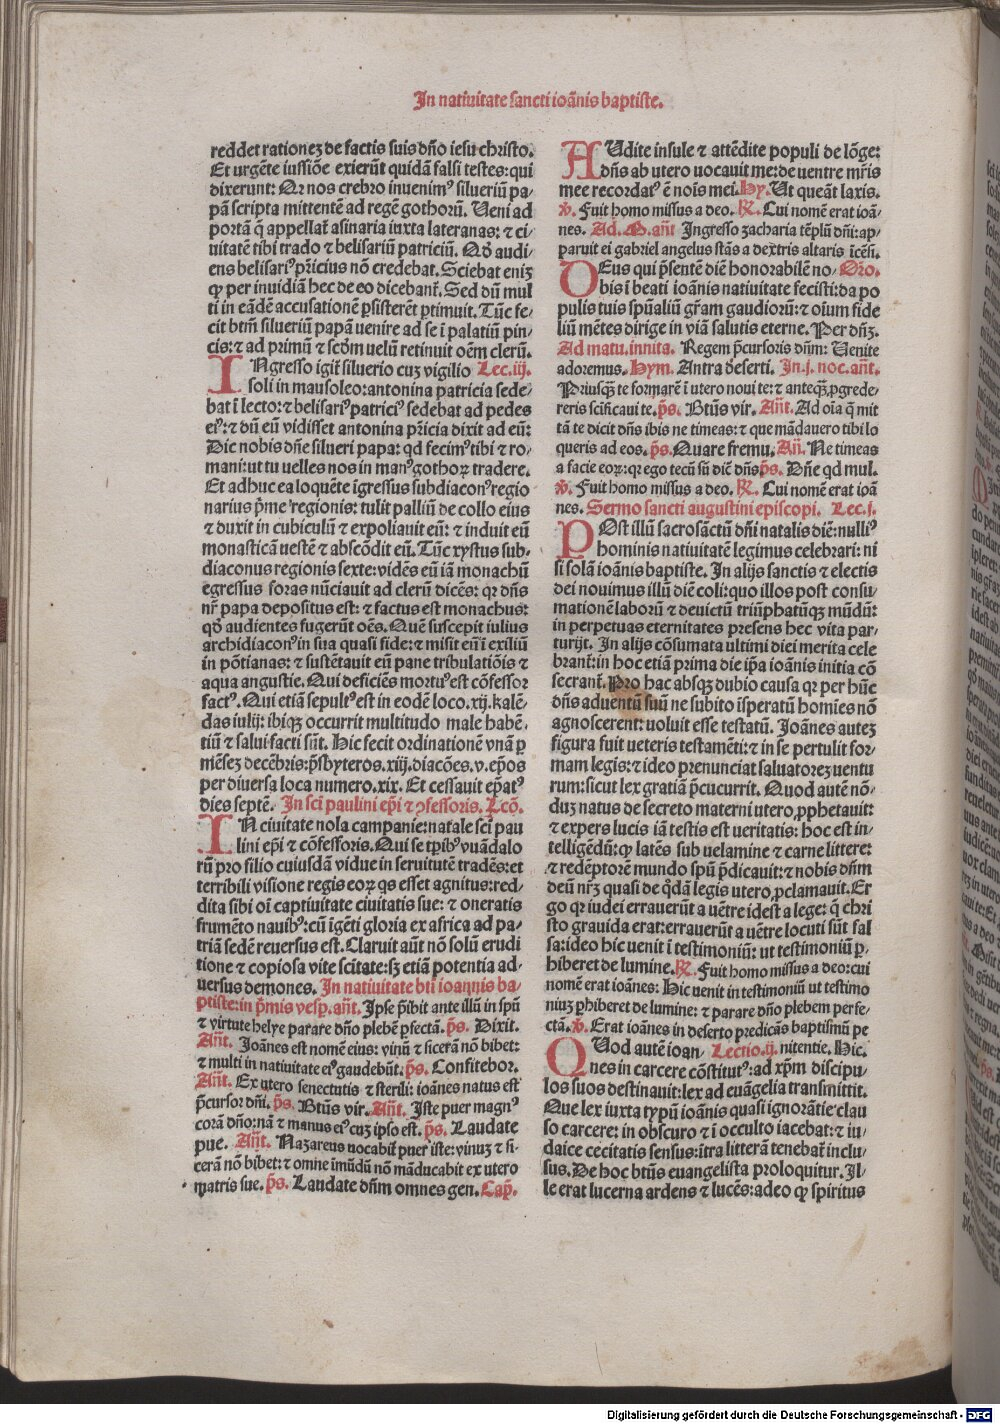 In natiuitate sancti ioãnis baptiste.
reddet rationeȝ de factis suis dño iesu christo.
Et urgẽte iussiõe exierũt quidã falsi testes: qui
dixerunt: Qr nos crebro inuenimꝰ silueriũ pa⸗
pã scripta mittentẽ ad regẽ gothorũ. Ueni ad
portã q̃ appellat᷑ asinaria iuxta lateranas: ⁊ ci⸗
uitatẽ tibi trado ⁊ belisariũ patriciũ. Qđ audi⸗
ens belisariꝰ pr̃icius nõ credebat. Sciebat eniȝ
ꝙ per inuidiã hec de eo dicebant᷑. Sed dũ mul
ti in eãdẽ accusationẽ ꝑsisterẽt ꝑtimuit. Tũc fe⸗
cit btm̃ silueriũ papã uenire ad se ĩ palatiũ pin⸗
cis: ⁊ ad primũ ⁊ scđm uelũ retinuit oẽm clerũ.
INgresso igit᷑ siluerio cuȝ vigilio Lec. iij.
soli in mausoleo: antonina patricia sede⸗
bat ĩ lecto: ⁊ belisariꝰ patriciꝰ sedebat ad pedes
eiꝰ: ⁊ dũ eũ vidisset antonina pr̃icia dixit ad eũ:
Dic nobis dñe silueri papa: qđ fecimꝰ tibi ⁊ ro⸗
mani: ut tu uelles nos in manꝰ gothoꝝ tradere.
Et adhuc ea loquẽte ĩgressus subdiaconꝰ regio
narius p̃me regionis: tulit palliũ de collo eius
⁊ duxit in cubiculũ ⁊ expolianit eũ: ⁊ induit eũ
monasticã uestẽ ⁊ abscõdit eũ. Tũc xystus sub⸗
diaconus regionis sexte: vidẽs eũ iã monachũ
egressus foras nũciauit ad clerũ dicẽs: qr dñs
nr̃ papa depositus est: ⁊ factus est monachus:
qđ audientes fugerũt oẽs. Quẽ suscepit iulius
archidiaconꝰ in sua quasi fide: ⁊ misit eũ ĩ exiliũ
in põtianas: ⁊ sustẽtauit eũ pane tribulatiõis ⁊
aqua angustie. Qui deficiẽs mortuꝰ est cõfessor
factꝰ. Qui etiã sepultꝰ est in eodẽ loco. xij. kalẽ⸗
das iulij: ibiqȝ occurrit multitudo male habẽ⸗
tiũ ⁊ salui facti sũt. Hic fecit ordinationẽ vnã ꝑ
mẽseȝ decẽbris: p̃sbyteros. xiij. diacões. v. ep̃os
per diuersa loca numero. xix. Et cessauit ep̃atꝰ
dies septẽ. In sci paulini ep̃i ⁊ ꝯfessoris. Lcõ.
IN ciuitate nola campanie: natale sci pau
lini ep̃i ⁊ cõfessoris. Qui se tꝑibꝰ vuãdalo
rũ pro filio cuiusdã vidue in seruitutẽ tradẽs: et
terribili visione regis eoꝝ qs esset agnitus: red⸗
dita sibi oĩ captiuitate ciuitatis sue: ⁊ oneratis
frumẽto nauibꝰ: cũ ĩgẽti gloria ex africa ad pa⸗
triã sedẽ reuersus est. Claruit aũt nõ solũ erudi
tione ⁊ copiosa vite scĩtate: sȝ etiã potentia ad⸗
uersus demones. In natiuitate bti ioannis ba⸗
ptiste: in p̃mis vesp. añt. Ipse p̃ibit ante illũ in spũ
⁊ virtute helye parare dño plebẽ ꝑfectã. p̃s. Dixit.
Añt. Ioãnes est nomẽ eius: vinũ ⁊ sicerã nõ bibet:
⁊ multi in natiuitate eiꝰ gaudebũt. p̃s. Confitebor.
Añt. Ex utero senectutis ⁊ sterili: ioãnes natus est
p̃cursor dñi. p̃s. Btũs vir. Añt. Iste puer magnꝰ
corã dño: nã ⁊ manus eiꝰ cuȝ ipso est. p̃s. Laudate
pue. Añt. Nazareus uocabit᷑ puer iste: vinuȝ ⁊ si⸗
cerã nõ bibet: ⁊ omne ĩmũdũ nõ mãducabit ex utero
matris sue. p̃s. Laudate dñm omnes gen. Cap̃.
AUdite insule ⁊ attẽdite populi de lõge:
dñs ab utero uocauit me: de uentre mr̃is
mee recordatꝰ ẽ nois mei. Hy. Ut queãt laxis.
℣. Fuit homo missus a deo. ℟. Cui nomẽ erat ioã⸗
nes. Ad. M. añt Ingresso zacharia tẽplũ dñi: ap⸗
paruit ei gabriel angelus stãs a dextris altaris ĩcẽsi.
DEus qui p̃sentẽ diẽ honorabilẽ no⸗ Oro.
bis ĩ beati ioãnis natiuitate fecisti: da po
pulis tuis spũaliũ gr̃am gaudiorũ: ⁊ oĩum fide
liũ mẽtes dirige in viã salutis eterne. Per dñȝ.
Ad matu. innita. Regem p̃cursoris dñm: Uenite
adoremus. Hym. Antra deserti. In. j. noc. añt.
Priusq̃ȝ te formarẽ ĩ utero noui te: ⁊ anteq̃ȝ ꝓgrede⸗
reris scificaui te. p̃s. Btũs vir. Añt. Ad oĩa q̃ mit
tã te dicit dñs ibis ne timeas: ⁊ que mãdauero tibi lo
queris ad eos. p̃s. Quare fremu. Añ. Ne timeas
a facie eoꝝ: qr ego tecũ sũ diẽ dñs p̃s. Dñe qđ mul.
℣. Fuit homo missus a deo. ℟. Cui nomẽ erat ioã
nes. Sermo sancti augustini episcopi. Lec. j.
POst illũ sacrosãctũ dñi natalis diẽ: nulliꝰ
hominis natiuitatẽ legimus celebrari: ni
si solã ioãnis baptiste. In alijs sanctis ⁊ electis
dei nouimus illũ diẽ coli: quo illos post consu⸗
mationẽ laborũ ⁊ deuictũ triũphatũqȝ mũdũ:
in perpetuas eternitates presens hec vita par⸗
turijt. In alijs cõsumata ultimi diei merita cele
brant᷑: in hoc etiã prima die ip̃a ioãnis initia cõ
secrant᷑. Pro hac absqȝ dubio causa qr per hũc
dñs aduentũ suũ ne subito ĩsperatũ homĩes nõ
agnoscerent: uoluit esse testatũ. Joãnes auteȝ
figura fuit ueteris testamẽti: ⁊ in se pertulit for⸗
mam legis: ⁊ ideo prenunciat saluatoreȝ uentu
rum: sicut lex gratiã p̃cucurrit. Quod autẽ nõ⸗
duȝ natus de secreto materni utero ꝓphetauit:
⁊ expers lucis iã testis est ueritatis: hoc est in⸗
telligẽdũ: ꝙ latẽs sub uelamine ⁊ carne littere:
⁊ redẽptorẽ mundo spũ p̃dicauit: ⁊ nobis dñm
deũ nr̃ȝ quasi de q̃dã legis utero ꝓclamauit. Er
go qr iudei errauerũt a uẽtre idest a lege: q̃ chri
sto grauida erat: errauerũt a uẽtre locuti sũt fal
sa: ideo hic uenit ĩ testimoniũ: ut testimoniũ ꝑ⸗
hiberet de lumine. ℟. Fuit homo missus a deo: cui
nomẽ erat ioãnes: Hic uenit in testimoniũ ut testimo
niuȝ ꝑhiberet de lumine: ⁊ parare dño plebem perfe⸗
ctã. ℣. Erat ioãnes in deserto predicãs baptismũ pe
QUod autẽ ioan⸗ Lectio. ij. nitentie. Hic.
nes in carcere cõstitutꝰ: ad xp̃m discipu⸗
los suos destinauit: lex ad euãgelia transmittit.
Que lex iuxta typũ ioãnis quasi ignorãtie clau
so carcere: in obscuro ⁊ ĩ occulto iacebat: ⁊ iu⸗
daice cecitatis sensus: ĩtra litterã tenebat᷑ inclu⸗
sus. De hoc btũs euangelista proloquitur. Il⸗
le erat lucerna ardens ⁊ lucẽs: adeo ꝙ spiritus
Digitalisierung gefördert durch die Deutsche Forschungsgemeinschaft - DFG